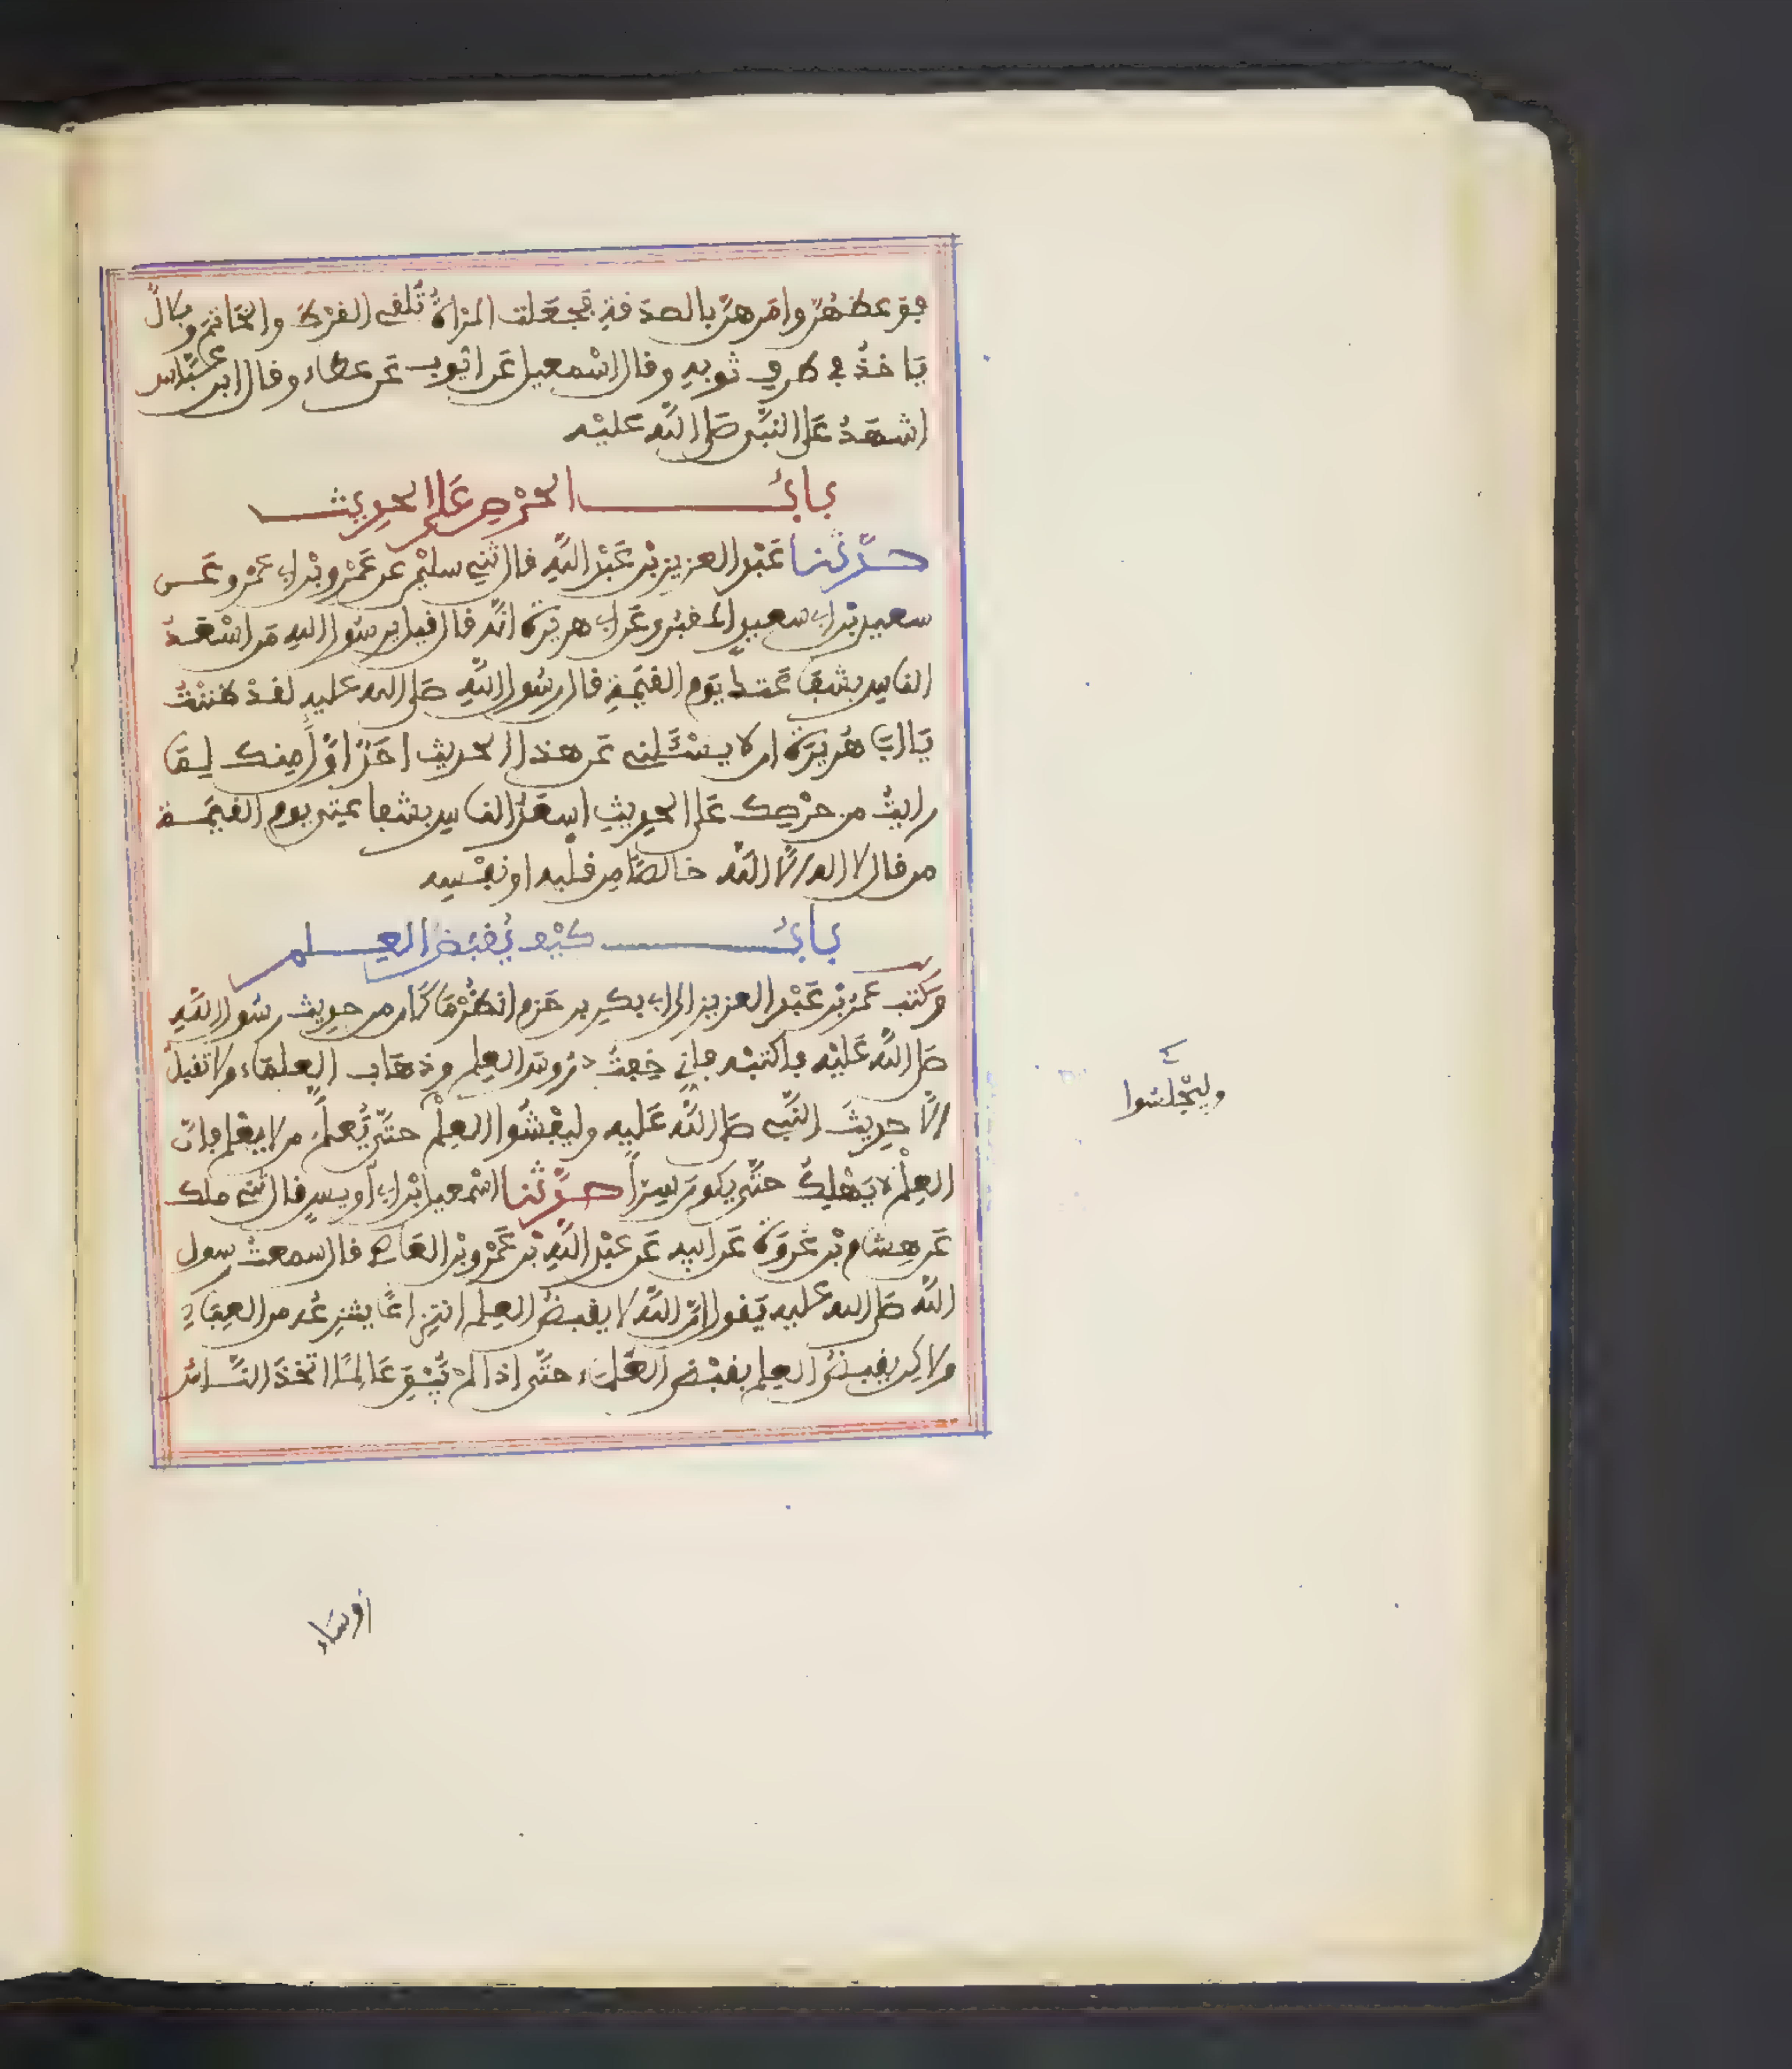 فوعظهن وامرهن بالصدفة فجعلت المرأة تلفي الفرط والخاتم وبلال
ياخذ في طرف ثوبه وفال اسمعيل عن ايوب عن عطاء وفال ابن عباس
اشهد على النبي صلى الله عليه
باب الحرص على الحديث
حدثنا عبد العزيز بن عبد الله فال ثني سليمن عن عمرو بن ابي عمرو عن
سعيد بن ابي سعيد المفبري عن ابي هريرة انه فال فيل يرسول الله من اسعد
الناس بشفاعتك يوم الفيمة فال رسول الله صلى الله عليه لفد ظننت
يا ابا هريرة ان لا يسئلني عن هذا الحديث احد اول منك لما
رايت من حرصك على الحديث اسعد الناس بشفاعتي يوم الفيمة
من فال لا اله الا الله خالصا من فلبه او نفسه
باب كيف يفبض العلم
وكتب عمر بن عبد العزيز الى ابي بكر بن حزم انظر ما كان من حديث رسول الله
صلى الله عليه فاكتبه فاني خفت دروس العلم وذهاب العلماء ولا تفبل
الا حديث النبي صلى الله عليه وليفشوا العلم حتى يعلم من لا يعلم فان
العلم لا يهلك حتى يكون سرا حدثنا اسمعيل بن ابي اويس فال ثني ملك
عن هشام بن عروة عن ابيه عن عبد الله بن عمرو بن العاص فال سمعت رسول
الله صلى الله عليه يفول ان الله لا يفبض العلم انتزاعا ينتزعه من العباد
ولاكن يفبض العلم بفبض العلماء حتى اذا لم يبق عالما اتخذ الناس
وليجلسوا
رؤساء